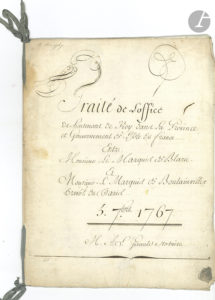 Traité de l'office
de Lieutenant de Roy dans la Province
et Gouvernement de l'Isle de france
Entre
Monsieur Le Marquis de
Et
Monsieur Le Marquis de Boulainvilliers
Prévôt de Paris
5. 7bre 1767
Notaire